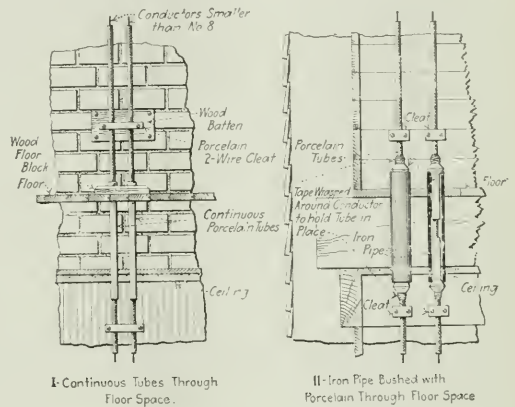 Conductors Smaller
than No 8
Wood
Batten
Porcelain
2-Wire Cleat
Wood
Floor
Block
Floor
Continuous
Porcelain Tubes
Ceiling
I-Continuous Tubes Through
Floor Space.
Cleat
Porcelain
Tubes
Floor
Tape Wrapped
Around Conductor
to hold Tube in
Place
Iron
Pipe
Ceiling
Cleat
II-Iron Pipe Bushed with
Porcelain Through Floor Space